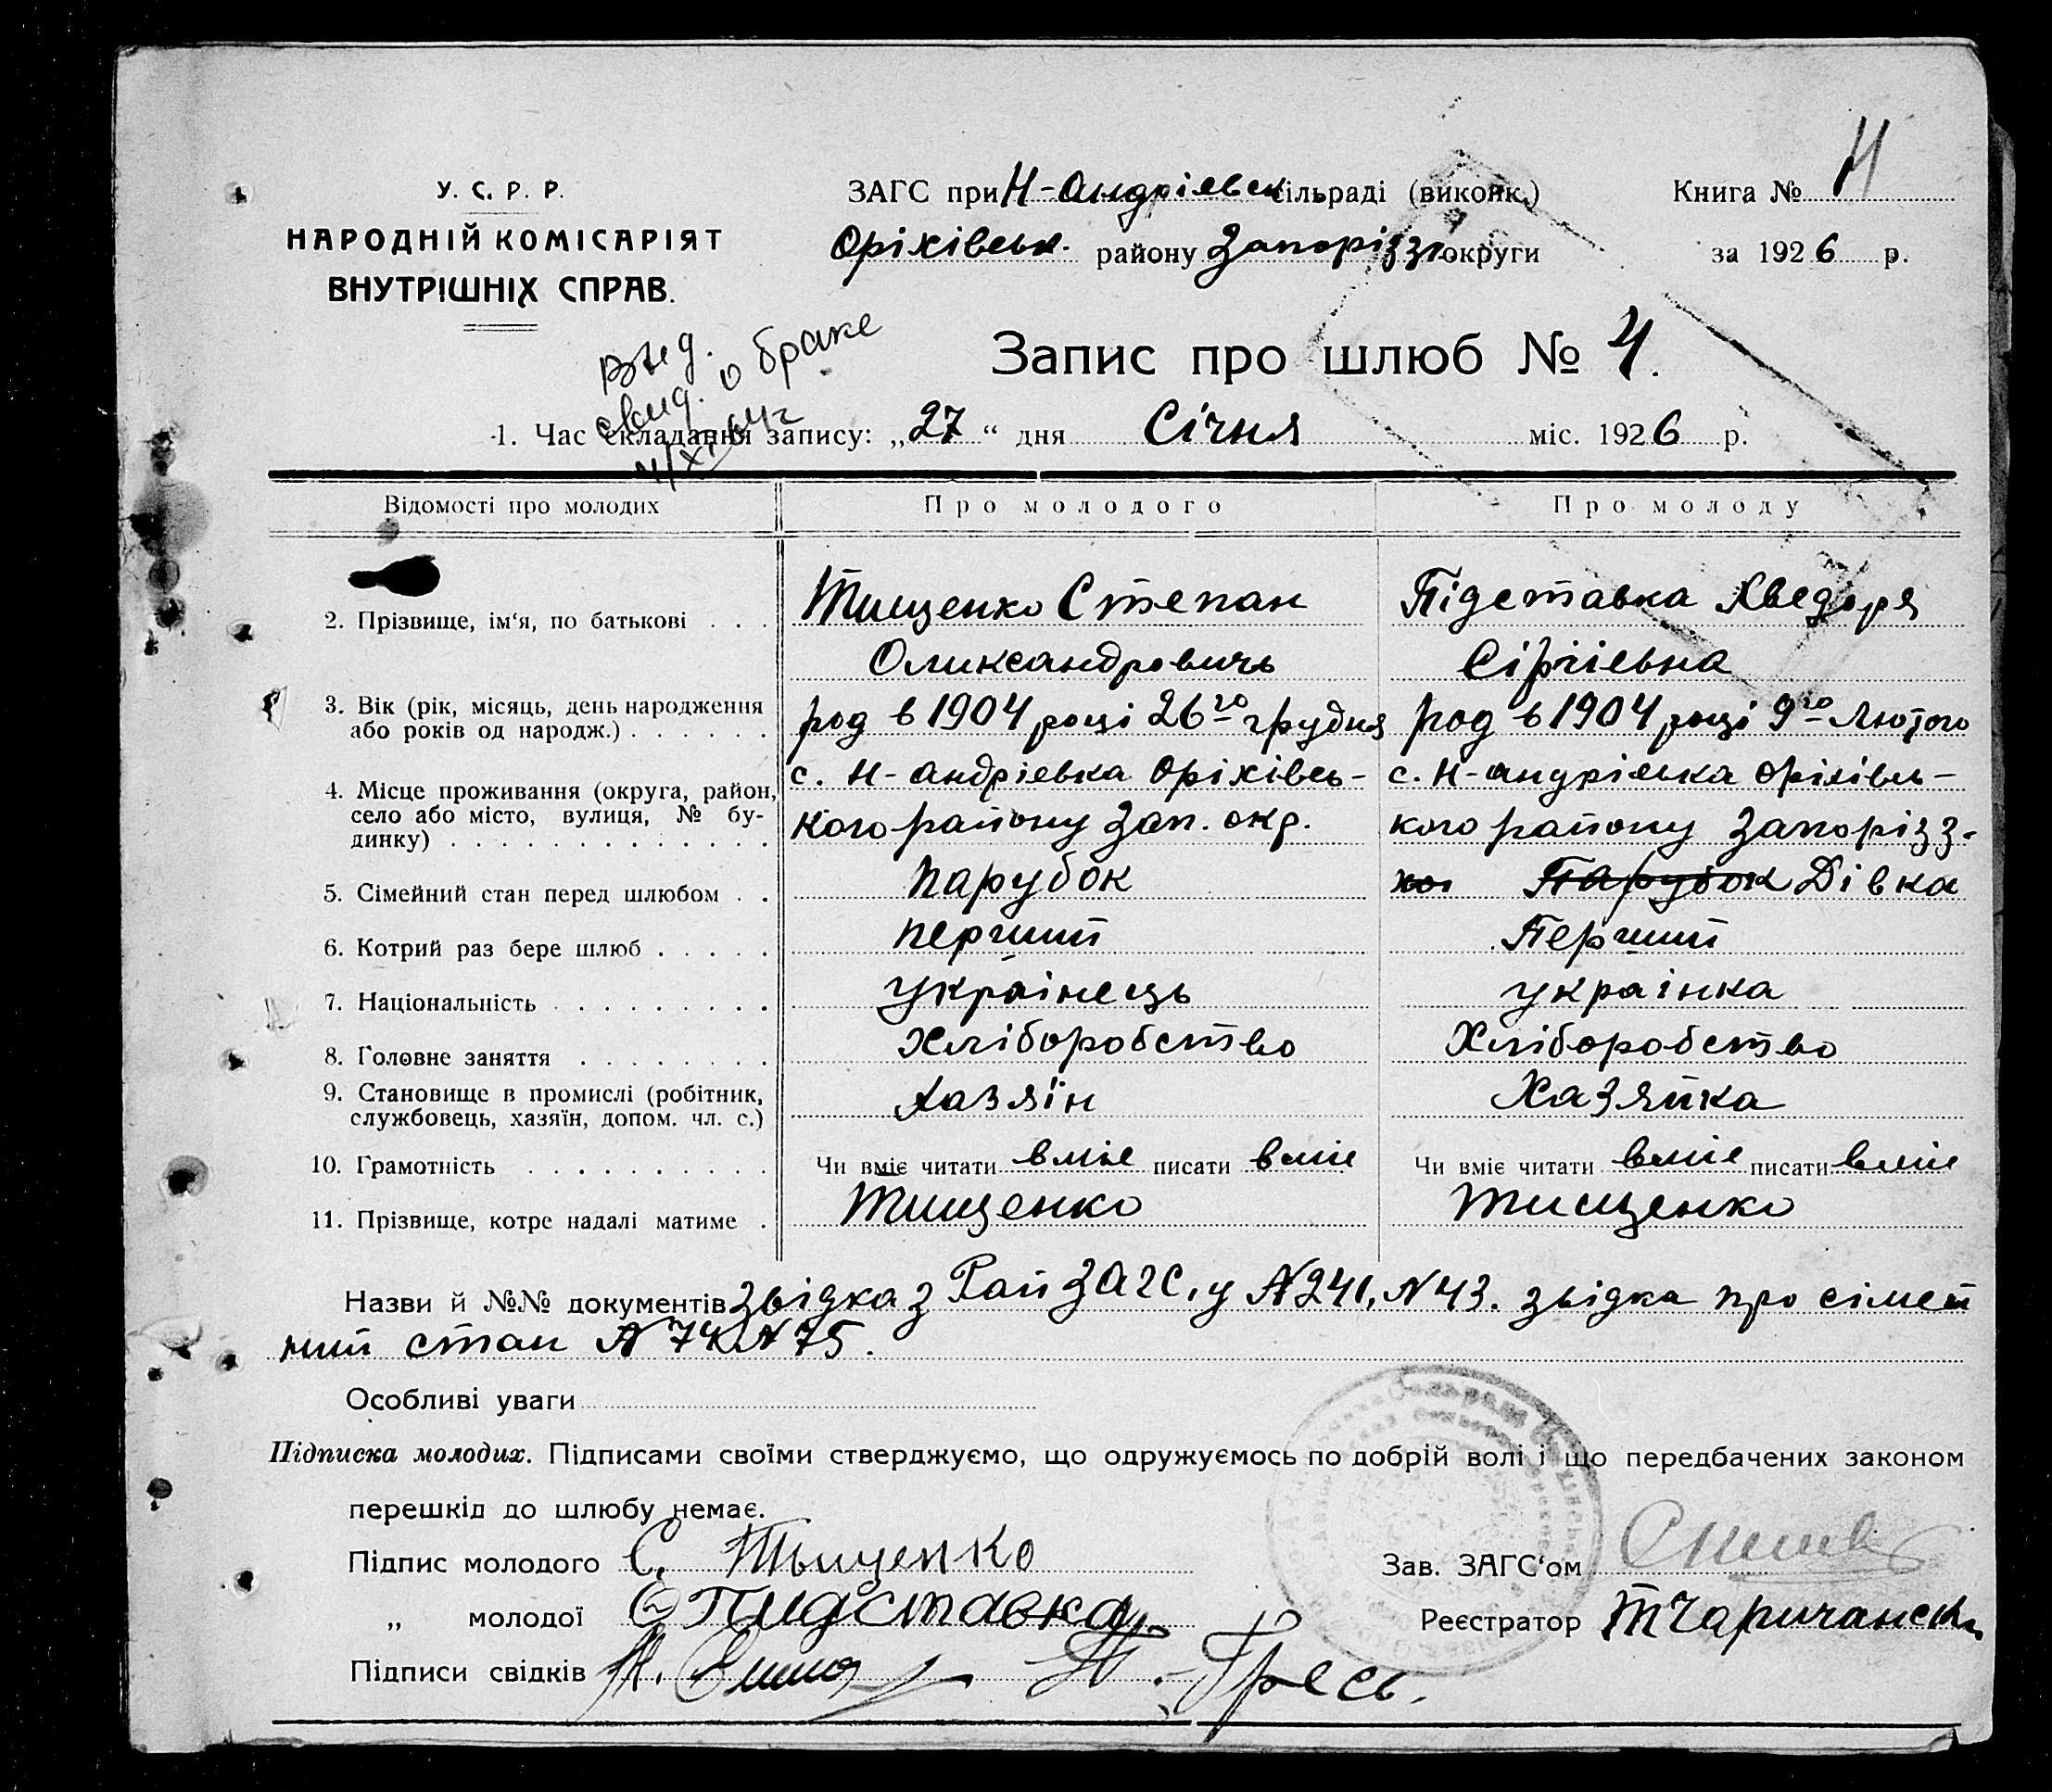 У. С. Р. Р.
НАРОДНІЙ КОМІСАРІЯТ
ВНУТРІШНІХ СПРАВ.
ЗАГС при Н-Андріевск сільраді (виконк.)
Оріхівськ. району Запорізз округи
Книга №
за 1926 р.
Выд.
свид. о браке
Запис про шлюб № 4.
1. Час складання запису: „27“ дня Січня міс. 1926 р.
Відомості про молодих Про молодого Про молоду
2. Прізвище, ім‘я, по батькові . . . Тищенко Степан Підставка Хведоря
Олександровичь Сіргіевна
3. Вік (рік, місяць, день народження або років од народж.) . . . . . . род в 1904 році 26го грудня род в 1904 році 9го Лютого
4. Місце проживання (округа, район, село або місто, вулиця, № бу-динку) . . . . . . . . . . . . . с. Н-андріевка Оріхівсь- с. Н-андріевка Оріхівсь-
кого району Зап. окр. кого району Запорізз-
5. Сімейний стан перед шлюбом . . парубок кої Парубок Дівка
6. Котрий раз бере шлюб . . . . . перший Перший
7. Національність . . . . . . . . . українець українка
8. Головне заняття . . . . . . . . Хліборобство Хліборобство
9. Становище в промислі (робітник, службовець, хазяїн, допом. чл. с.) Хазяїн Хазяйка
10. Грамотність . . . . . . . . . . Чи вміє читати вміє писати вміє Чи вміє читати вміє писати вміє
11. Прізвище, котре надалі матиме . Тищенко Тищенко
Назви й №№ документів звідка з РайЗАГС,у №241, №43. звідка про сімей
ний стан №74 №75.
Особливі уваги
Підписка молодих. Підписами своїми стверджуємо, що одружуємось по добрій волі і що передбачених законом
перешкід до шлюбу немає.
Підпис молодого С. Тыщенко
Зав. ЗАГС‘ом
„ молодої Пидставка
Реєстратор Т Чаричанськ
Підписи свідків Гресь.